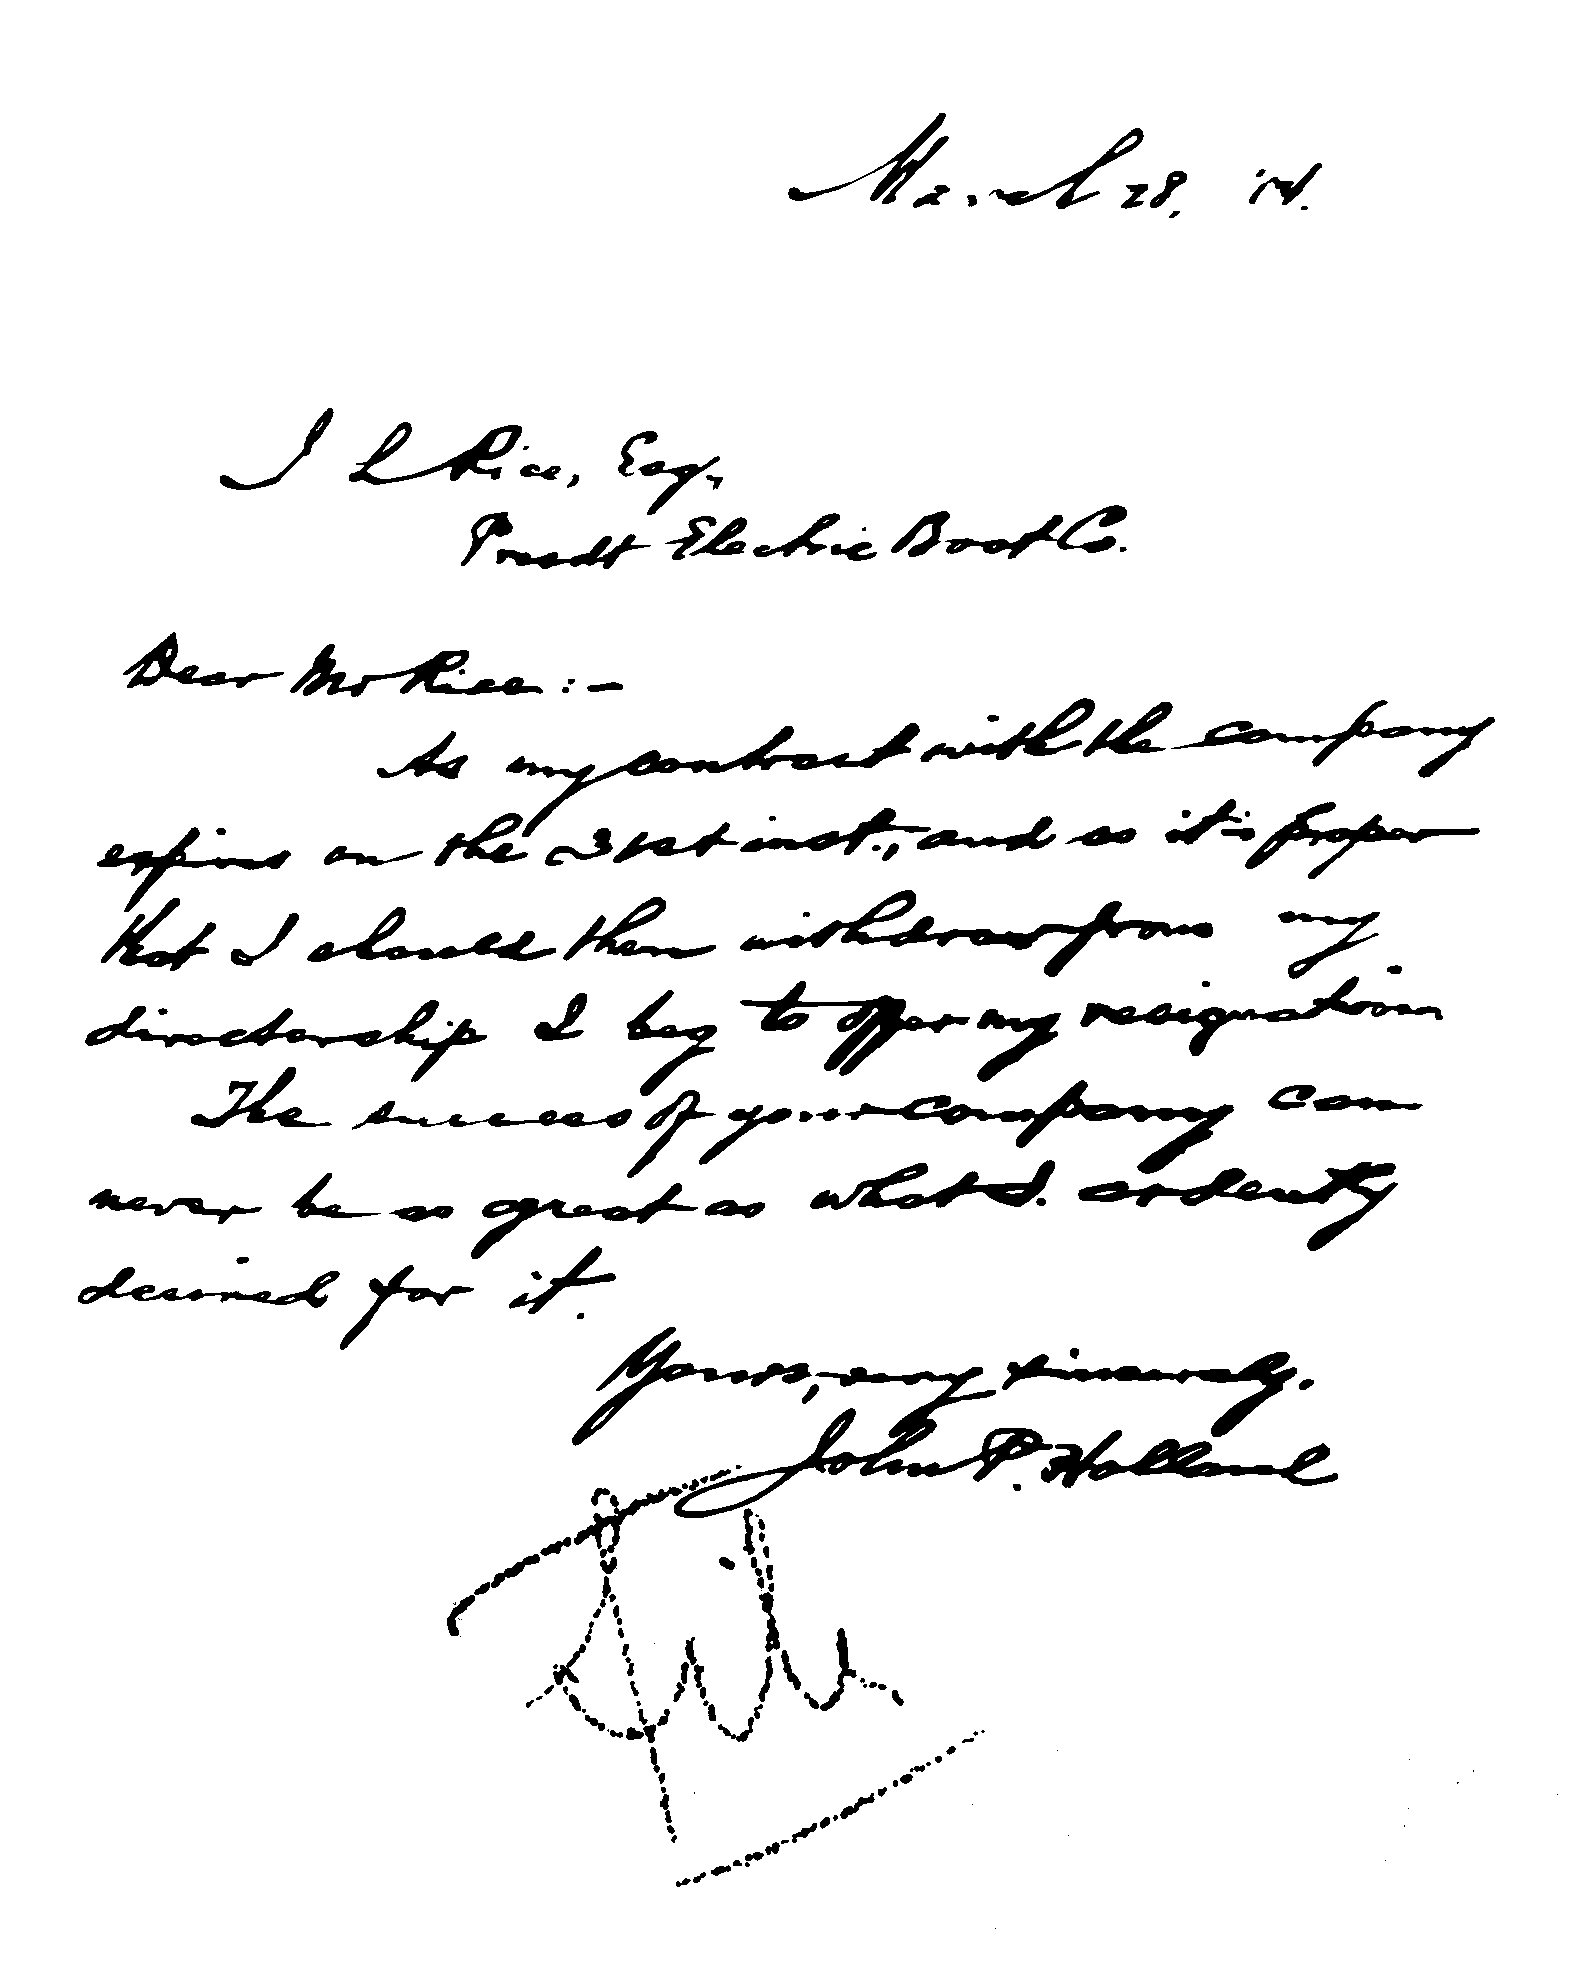 March 28. '04.
I L Rice, Esq.,
Presdt Electric Boat Co.
Dear Mr Rice :-
As my contract with the company
expires on the 31st inst., and as it is proper
that I should then withdraw from my
directorship I beg to offer my resignation
The success of your company can
never be as great as what I. ardently
desired for it.
Yours, very sincerely.
John P. Holland